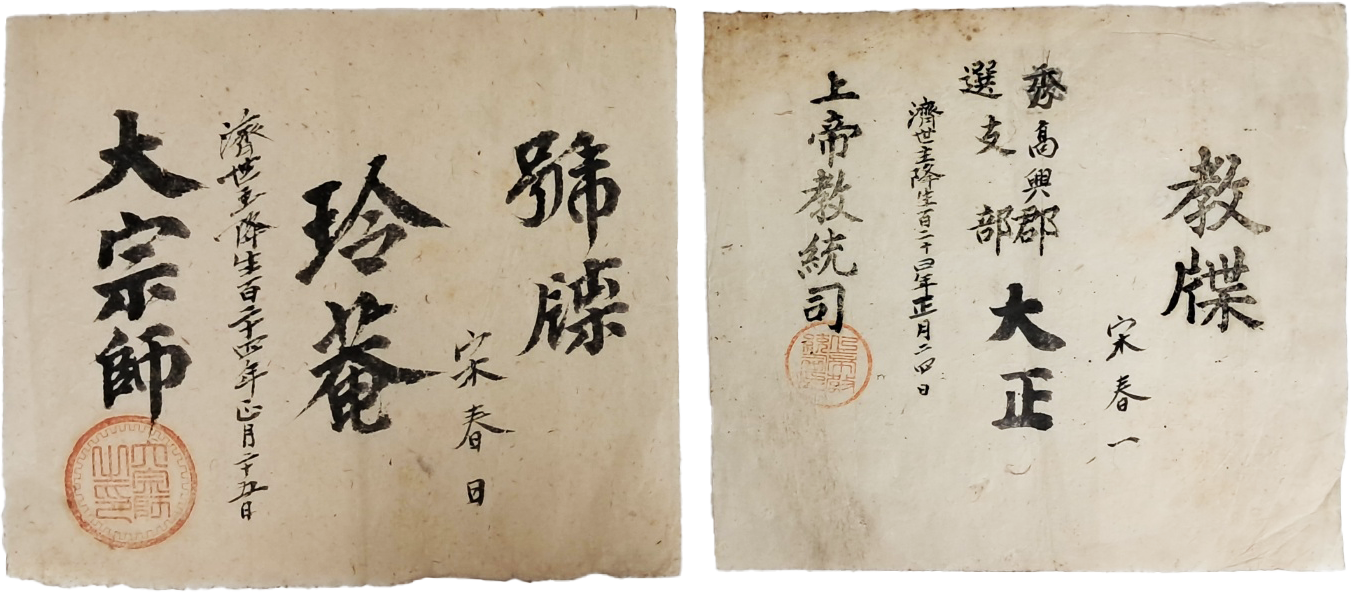 教牒
宋春一
高興郡
選支部
大正
濟世主降生百二十四年正月二四日
上帝教統司
號牒
宋春日
玲菴
濟世主降生百二十四年正月二十五日
大宗師
大宗師
之印